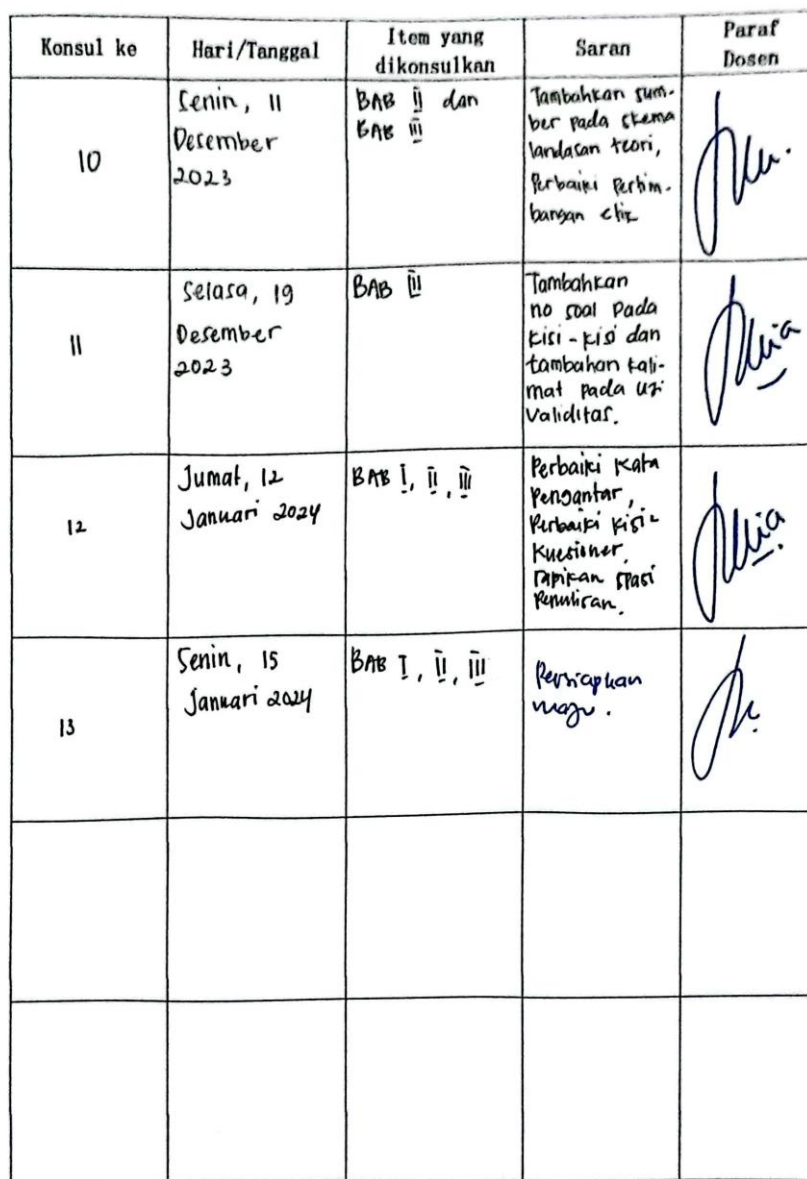 Konsul ke
Hari/Tanggal
Item yang
dikonsulkan
Saran
Paraf
Dosen
10
Senin, 11
Desember
2023
BAB II dan
BAB III
Tambahkan sum-
ber pada skema
landasan teori,
Perbaiki Pertim-
bangan etik
11
Selasa, 19
Desember
2023
BAB III
Tambahkan
no soal pada
kisi-kisi dan
tambahan kali-
mat pada uji
validitas.
12
Jumat, 12
Januari 2024
BAB I, II, III
Perbaiki Kata
Pengantar,
Perbaiki kisi²
Kuesioner,
rapikan spasi
Penulisan.
13
Senin, 15
Januari 2024
BAB I, II, III
Persiapkan
maju.